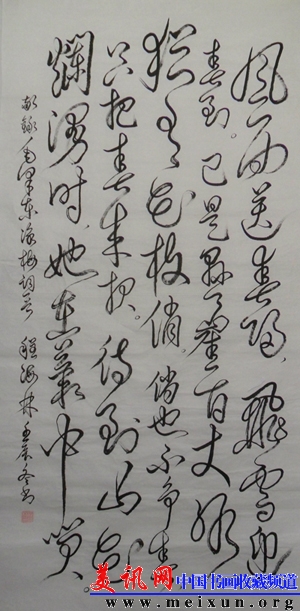 风雨送春归，飞雪迎
春到。已是悬崖百丈冰
犹有花枝俏。俏也不争春
只把春来报。待到山花
烂漫时，她在丛中笑。
敬录毛泽东咏梅词 程海林 壬辰冬书
美讯网 中国书画收藏频道
www.meixun.org